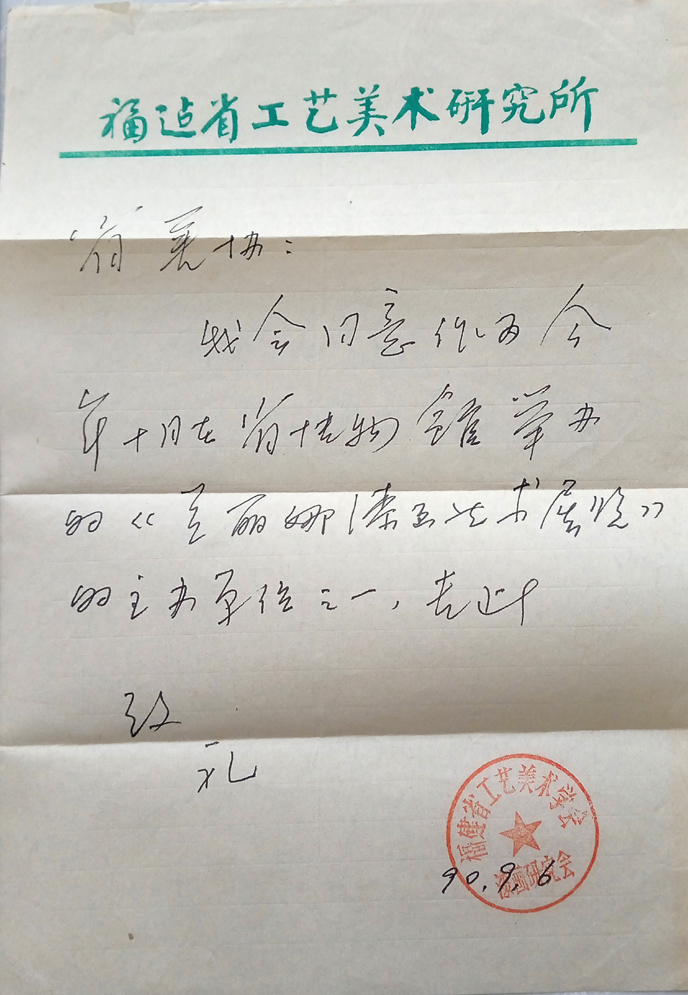 福建省工艺美术研究所
省美协：
我会同意作为今
年十月在省博物馆举办
的《兰丽娜漆画艺术展览》
的主办单位之一，专此
致
礼
福建省工艺美术学会
漆画研究会
90.9.6